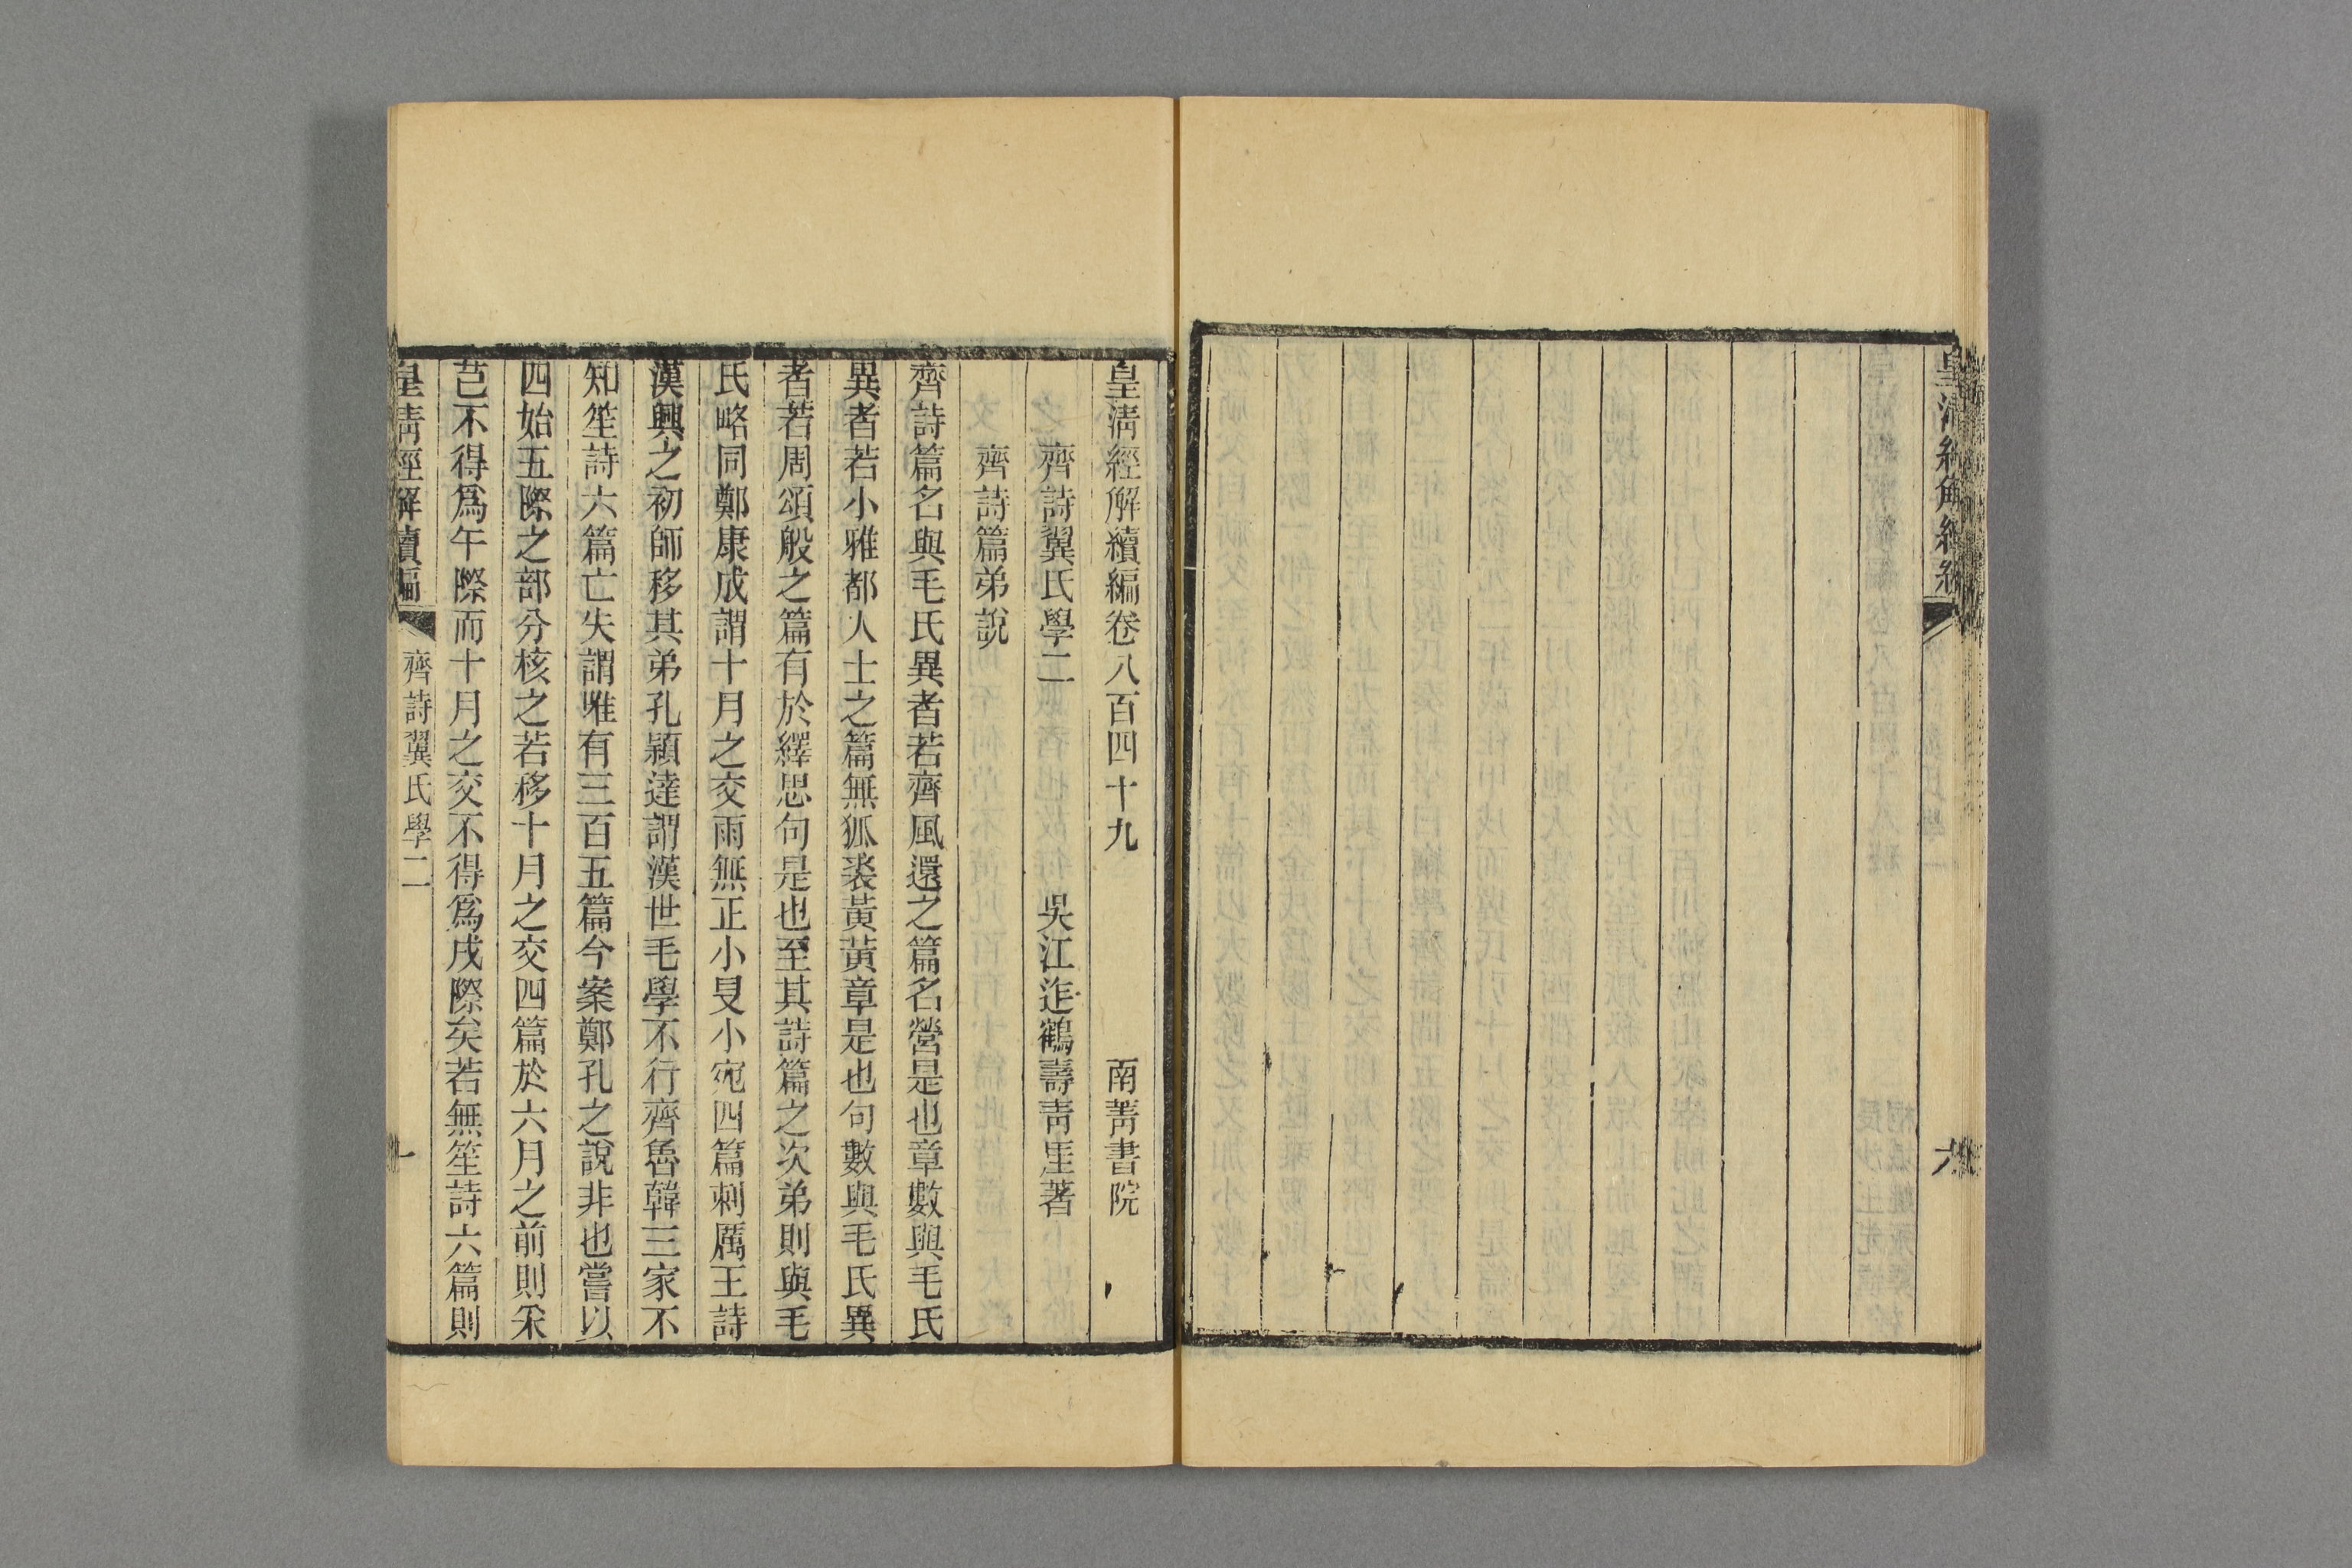 皇清經解續編卷八百四十九 南菁書院
齊詩翼氏學二 吳江迮鶴壽青厓著
齊詩篇弟說
齊詩篇名與毛氏異者若齊風還之篇名營是也章數與毛氏
異者若小雅都人士之篇無狐裘黃黃章是也句數與毛氏異
者若周頌般之篇有於繹思句是也至其詩篇之次弟則與毛
氏略同鄭康成謂十月之交雨無正小旻小宛四篇刺厲王詩
漢興之初師移其弟孔穎達謂漢世毛學不行齊魯韓三家不
知笙詩六篇亡失謂唯有三百五篇今案鄭孔之說非也嘗以
四始五際之部分核之若移十月之交四篇於六月之前則采
芑不得爲午際而十月之交不得爲戌際矣若無笙詩六篇則
皇清經解續編 齊詩翼氏學二 一